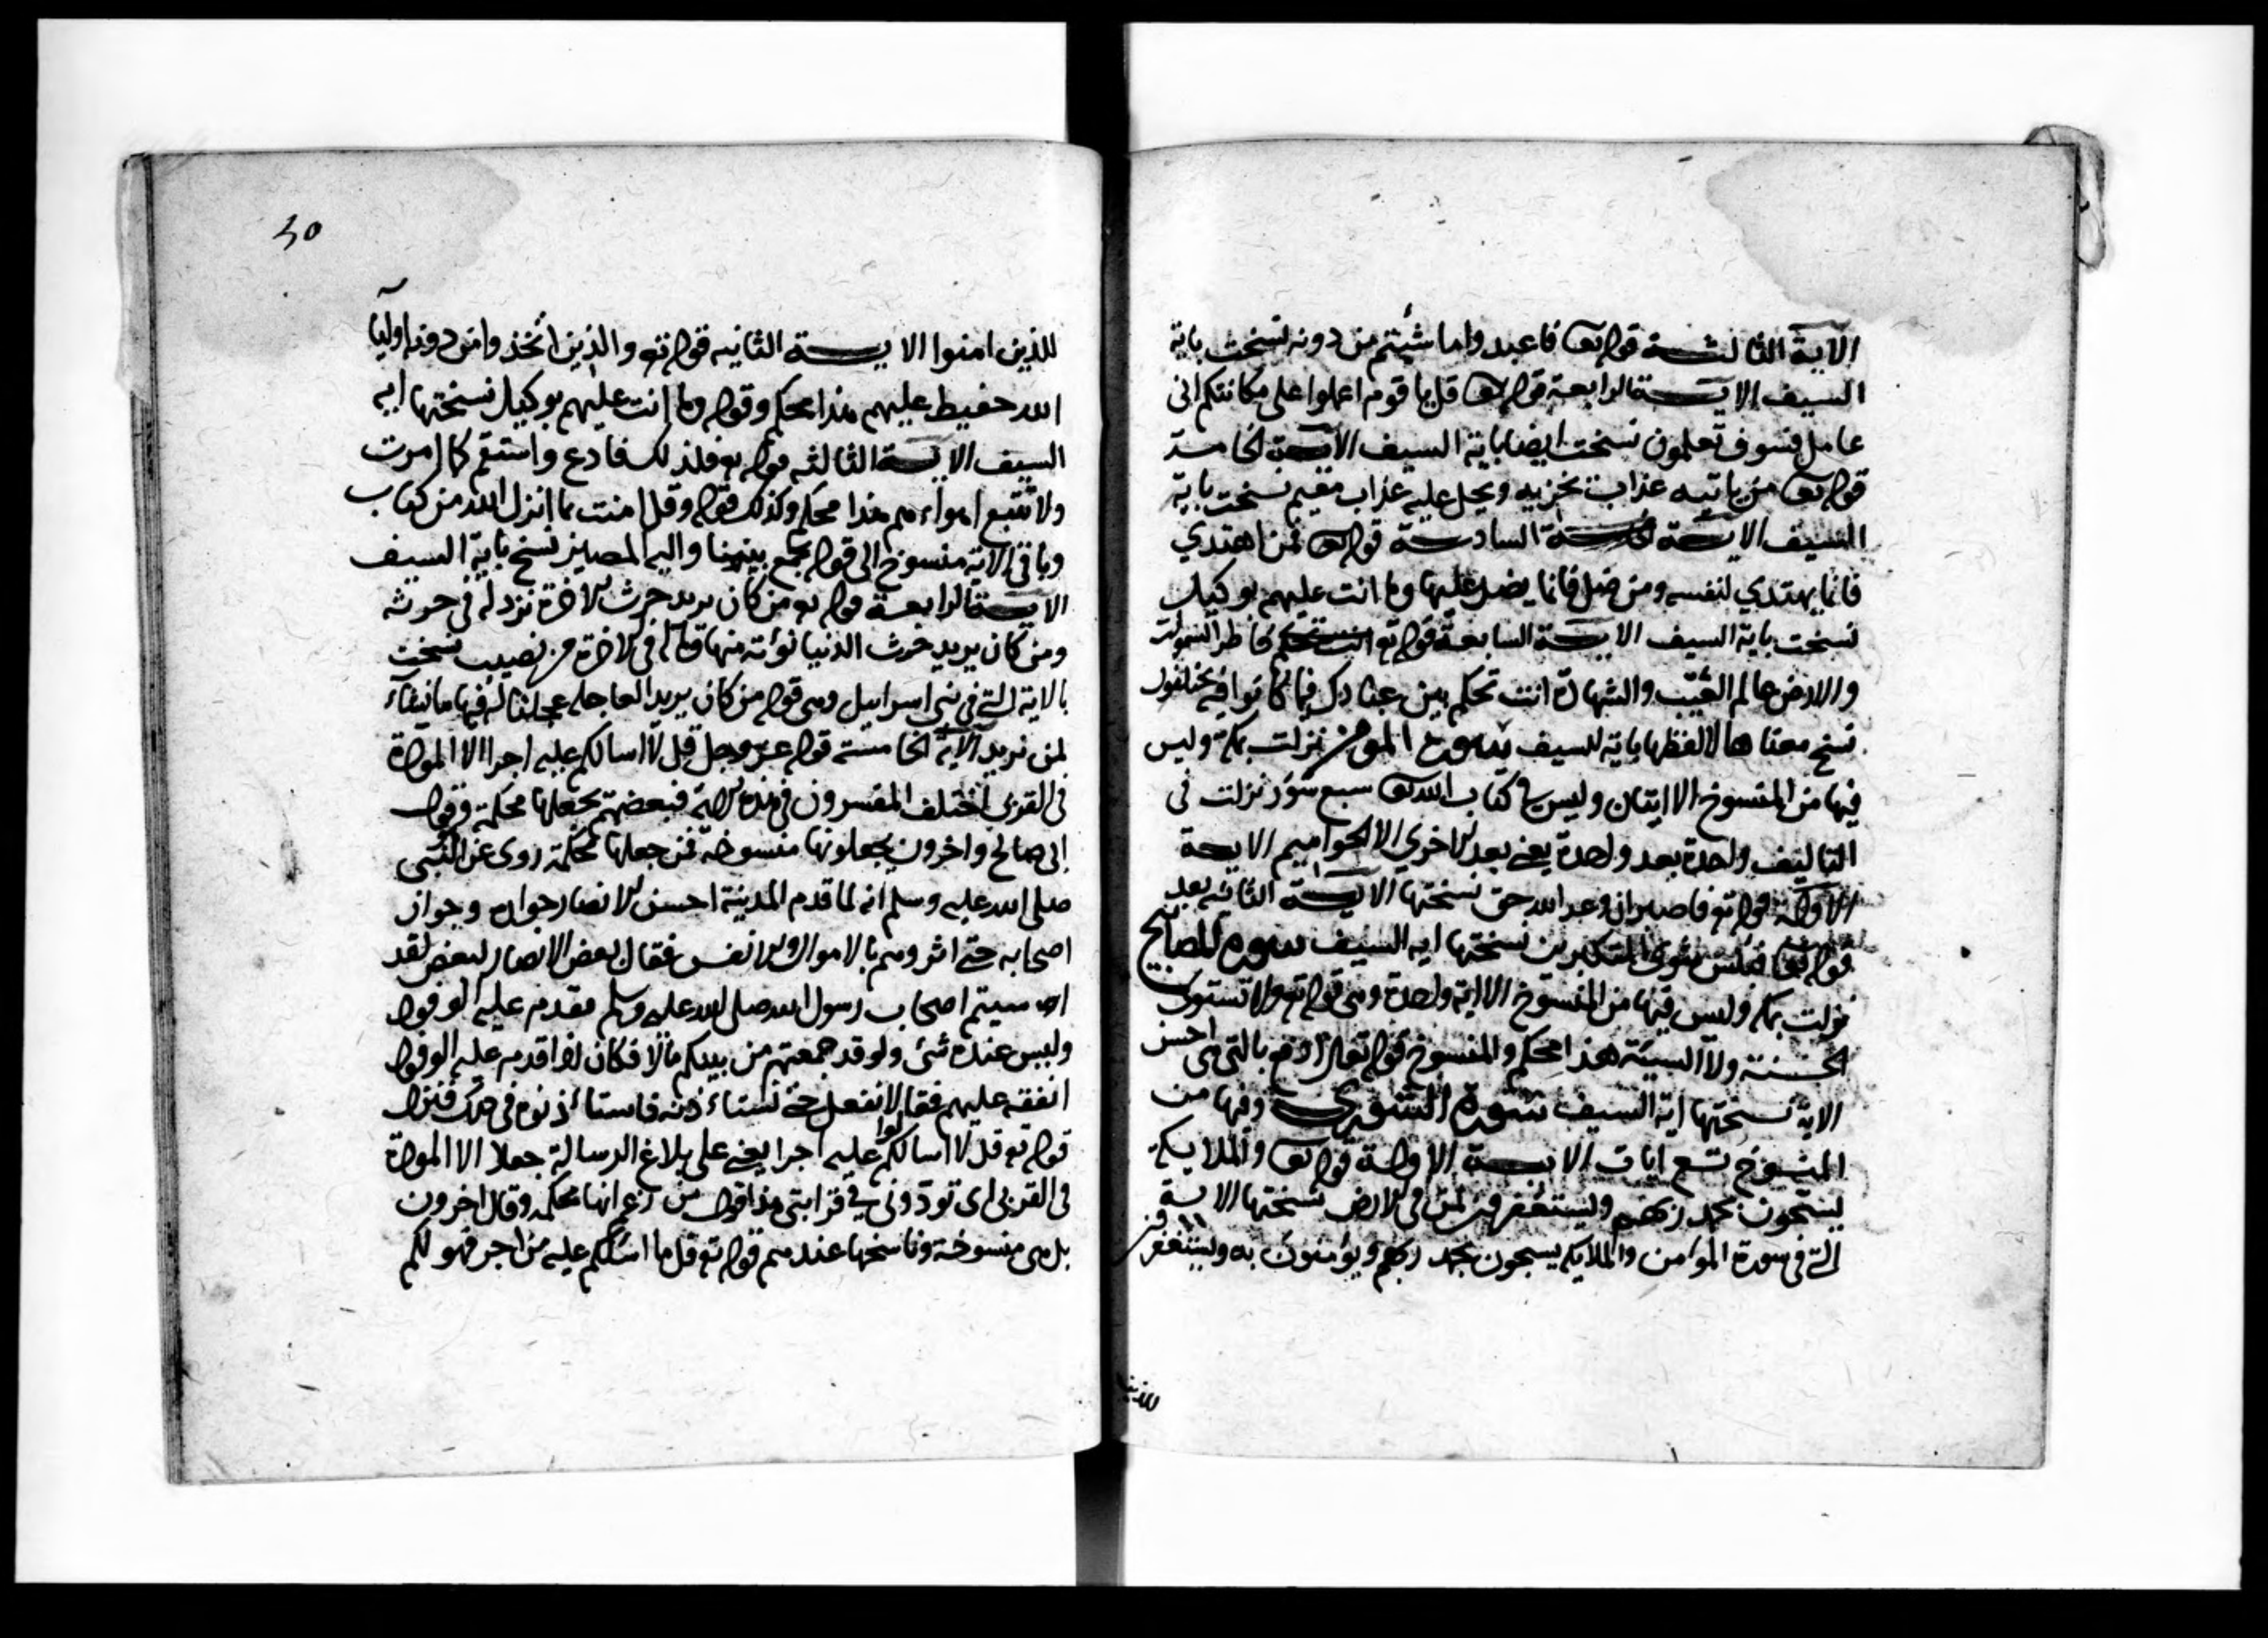 الآية الثالثة قوله تعا فاعبدوا ما شئتم من دونه نسخت باية
السيف الاية الرابعة قوله تعا قل يا قوم اعملوا على مكانتكم انى
عامل فسوف تعلمون نسخت ايضا باية السيف الاية الخامسة
قوله تعا من ياتيه عذاب يخزيه ويحل عليه عذاب مقيم نسخت باية
السيف الاية السادسة قوله تعا فمن اهتدي
فانما يهتدي لنفسه ومن ضل فانما يضل عليها وما انت عليهم بوكيل
نسخت باية السيف الاية السابعة قوله تع فاطر السموات
والارض عالم الغيب والشهادة انت تحكم بين عبادك فيما كانوا فيه يختلفون
نسخ معناها لا لفظها باية السيف سورة المومن نزلت بمكة وليس
فيها من المنسوخ الا ايتان وليس في كتاب الله تعا سبع سور نزلت في
التاليف واحدة بعد واحدة يعني بعد الاخري الا الحواميم الاية
الاولة قوله تع فاصبر ان وعد الله حق نسختها الاية الثانيه بعد
قوله تعا فبئس مثوى المتكبرين نسختها اية السيف سورة المصابيح
نزلت بمكة وليس فيها من المنسوخ الا اية واحدة وهى قوله تع ولا تستوى
الحسنة ولا السيئة هذا محكم والمنسوخ قوله تعالى ادفع بالتى هى احسن
الاية نسختها اية السيف سورة الشورى وفيها من
المنسوخ تسع ايات الاية الاولة قوله تعا والملايكة
يسبحون بحمد ربهم ويستغفرون لمن فى الارض نسختها الاية
التى فى سورة المؤمن والملايكة يسبحون بحمد ربهم ويؤمنون به ويستغفرون
للذين
٣٥
للذين امنوا الاية الثانيه قوله تع والذين اتخذوا من دونه اوليآ
الله حفيظ عليهم هذا محكم وقوله وما انت عليهم بوكيل نسختها ايه
السيف الاية الثالثه قوله تع فلذلك فادع واستقم كما امرت
ولا تتبع اهواءهم هذا محكم وكذلك قوله وقل امنت بما انزل الله من كتاب
وباقى الاية منسوخ الى قوله يجمع بيننا واليه المصير نسخ باية السيف
الاية الرابعة قوله تع من كان يريد حرث الاخرة نزد له فى حرثه
ومن كان يريد حرث الدنيا نؤته منها وماله فى الاخرة من نصيب نسخت
بالاية التى فى بنى اسرايل وهى قوله من كان يريد العاجلة عجلنا له فيها ما نشآء
لمن نريد الاية الخامسة قوله عز وجل قل لا اسالكم عليه اجرا الا المودة
فى القربى اختلف المفسرون فى هذه الاية فبعضهم يجعلها محكمة وقول
ابى صالح واخرون يجعلونها منسوخة فمن جعلها محكمة روى عن النبى
صلى الله عليه وسلم انه لما قدم المدينة احسن الانصار جواره وجوار
اصحابه حتى اثروهم بالاموال والانفس فقال بعض الانصار لبعض لقد
اسيتم اصحاب رسول الله صلى الله عليه وسلم فقدم عليه الوفود
وليس عنده شئ ولو قد جمعتم من بينكم مالا فكان اذا قدم عليه الوفود
انفقه عليهم فقالوا لا نفعل حتى نستاءذنه فاستاءذنوه فى ذلك فنزل
قوله تع قل لا اسالكم عليه اجرا يعنى على بلاغ الرسالة جعلا الا المودة
فى القربى اى تودونى فى قرابتى هذا قول من زعم انها محكمه وقال اخرون
بل هى منسوخة وناسخها عندهم قوله تع قل ما اسئلكم عليه من اجر فهو لكم